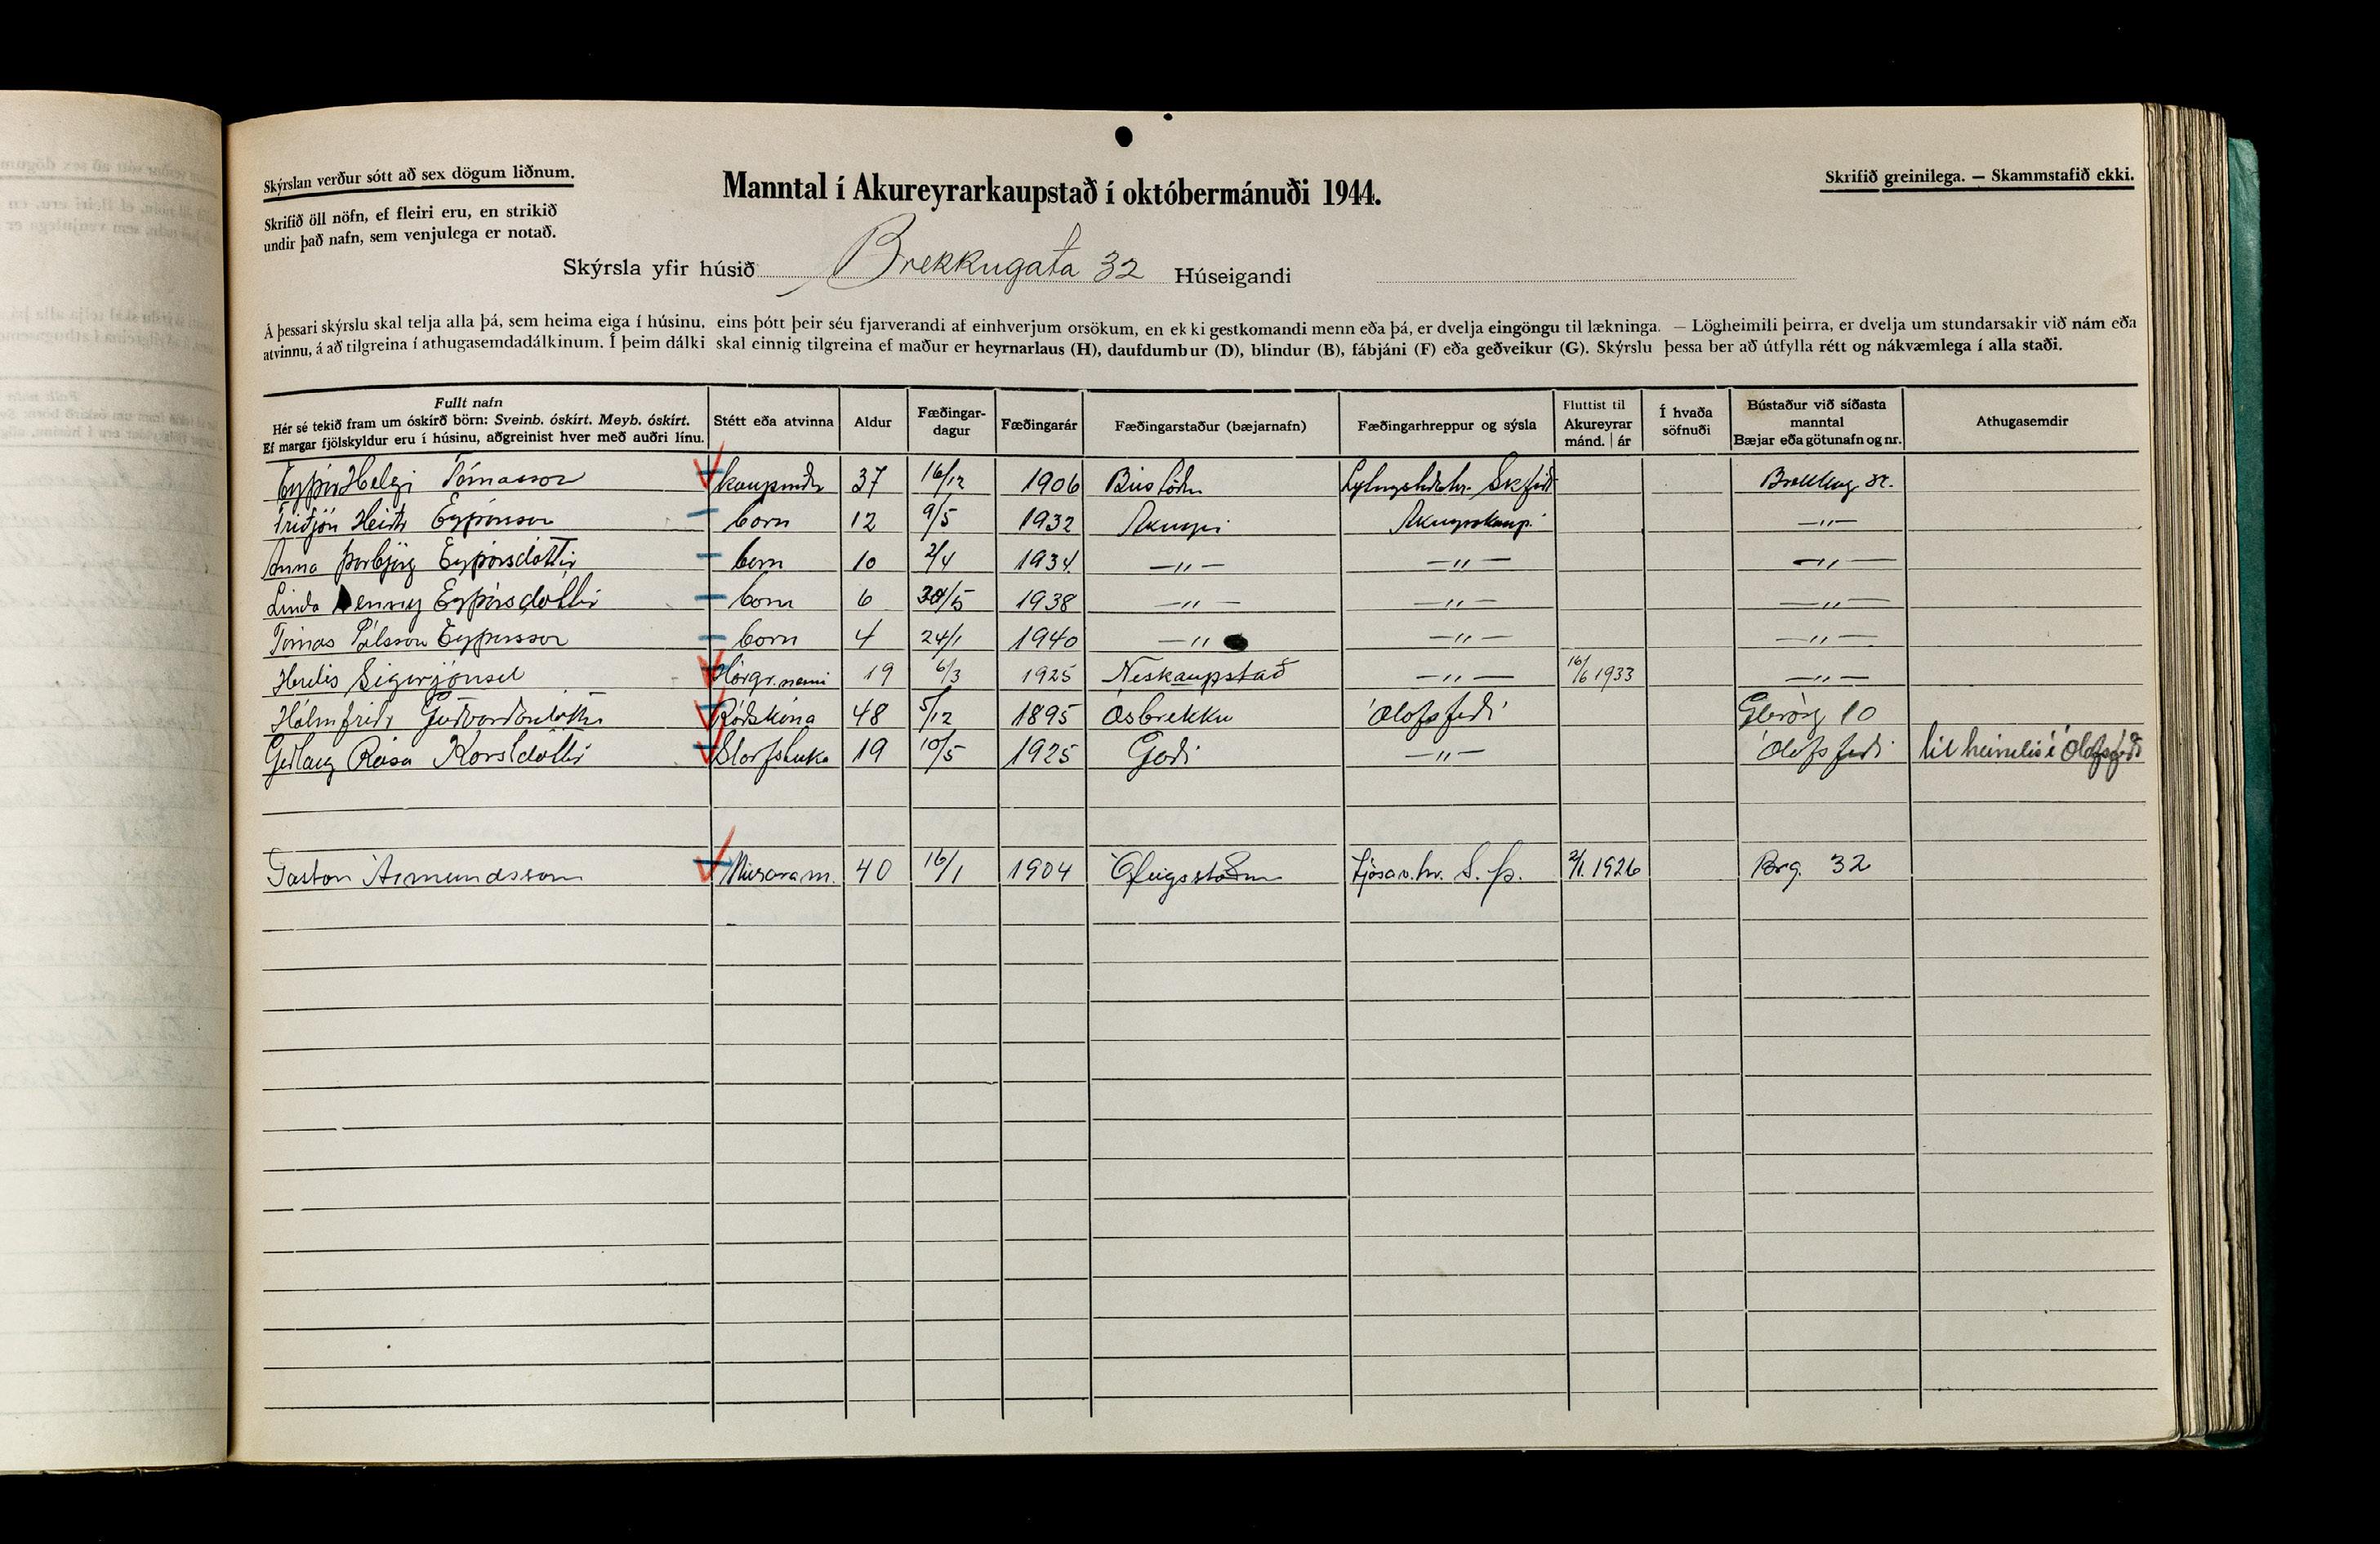 Skýrslan verður sótt að sex dögum liðnum.
Skrifið öll nöfn, ef fleiri eru, en strikið
undir það nafn, sem venjulega er notað.
Manntal í Akureyrarkaupstað í októbermánuði 1944.
Skrifið greinilega. — Skammstafið ekki.
Skýrsla yfir húsið Brekkugata 32 Húseigandi
Á þessari skýrslu skal telja alla þá, sem heima eiga í húsinu, eins þótt þeir séu fjarverandi af einhverjum orsökum, en ekki gestkomandi menn eða þá, er dvelja eingöngu til lækninga. — Lögheimili þeirra, er dvelja um stundarsakir við nám eða
atvinnu, á að tilgreina í athugasemdadálkinum. Í þeim dálki skal einnig tilgreina ef maður er heyrnarlaus (H), daufdumbur (D), blindur (B), fábjáni (F) eða geðveikur (G). Skýrslu þessa ber að útfylla rétt og nákvæmlega í alla staði.
Fullt nafn
Hér sé tekið fram um óskírð börn: Sveinb. óskírt. Meyb. óskírt.
Ef margar fjölskyldur eru í húsinu, aðgreinist hver með auðri línu.
Stétt eða atvinna
Aldur
Fæðingar-
dagur
Fæðingarár
Fæðingarstaður (bæjarnafn)
Fæðingarhreppur og sýsla
Fluttist til
Akureyrar
mánd. | ár
Í hvaða
söfnuði
Bústaður við síðasta
manntal
Bæjar eða götunafn og nr.
Athugasemdir
Eyþór Helgi Tómasson 37 16/12 1906
Friðjón Heiðar Eyþórsson born 12 9/5 1932 Akureyri
Anna Þorbjörg Eyþórsdóttir born 10 2/4 1934 —"— —"— —"—
Linda Denny Eyþórsdóttir born 6 30/5 1938 —"— —"— —"—
Tómas Pálsson Eyþórsson born 4 24/1 1940 —" —"— —"—
Herdís Sigurjónsd Hárgr.nemi 19 6/3 1925 Neskaupstað —"— 16/6 1933 —"—
Hólmfríðr Guðvarðardóttir Ráðskona 48 5/12 1895 Ósbrekku Ólafsfirði 10
Rósa 19 10/5 1925 —"— Ólafsfirði til heimilis í Ólafsfirði
Gaston Ásmundsson Múraram. 40 16/1 1904 Ófeigsstöðum Ljósav.hr. S. Þ. 2/1 1926 Brg. 32